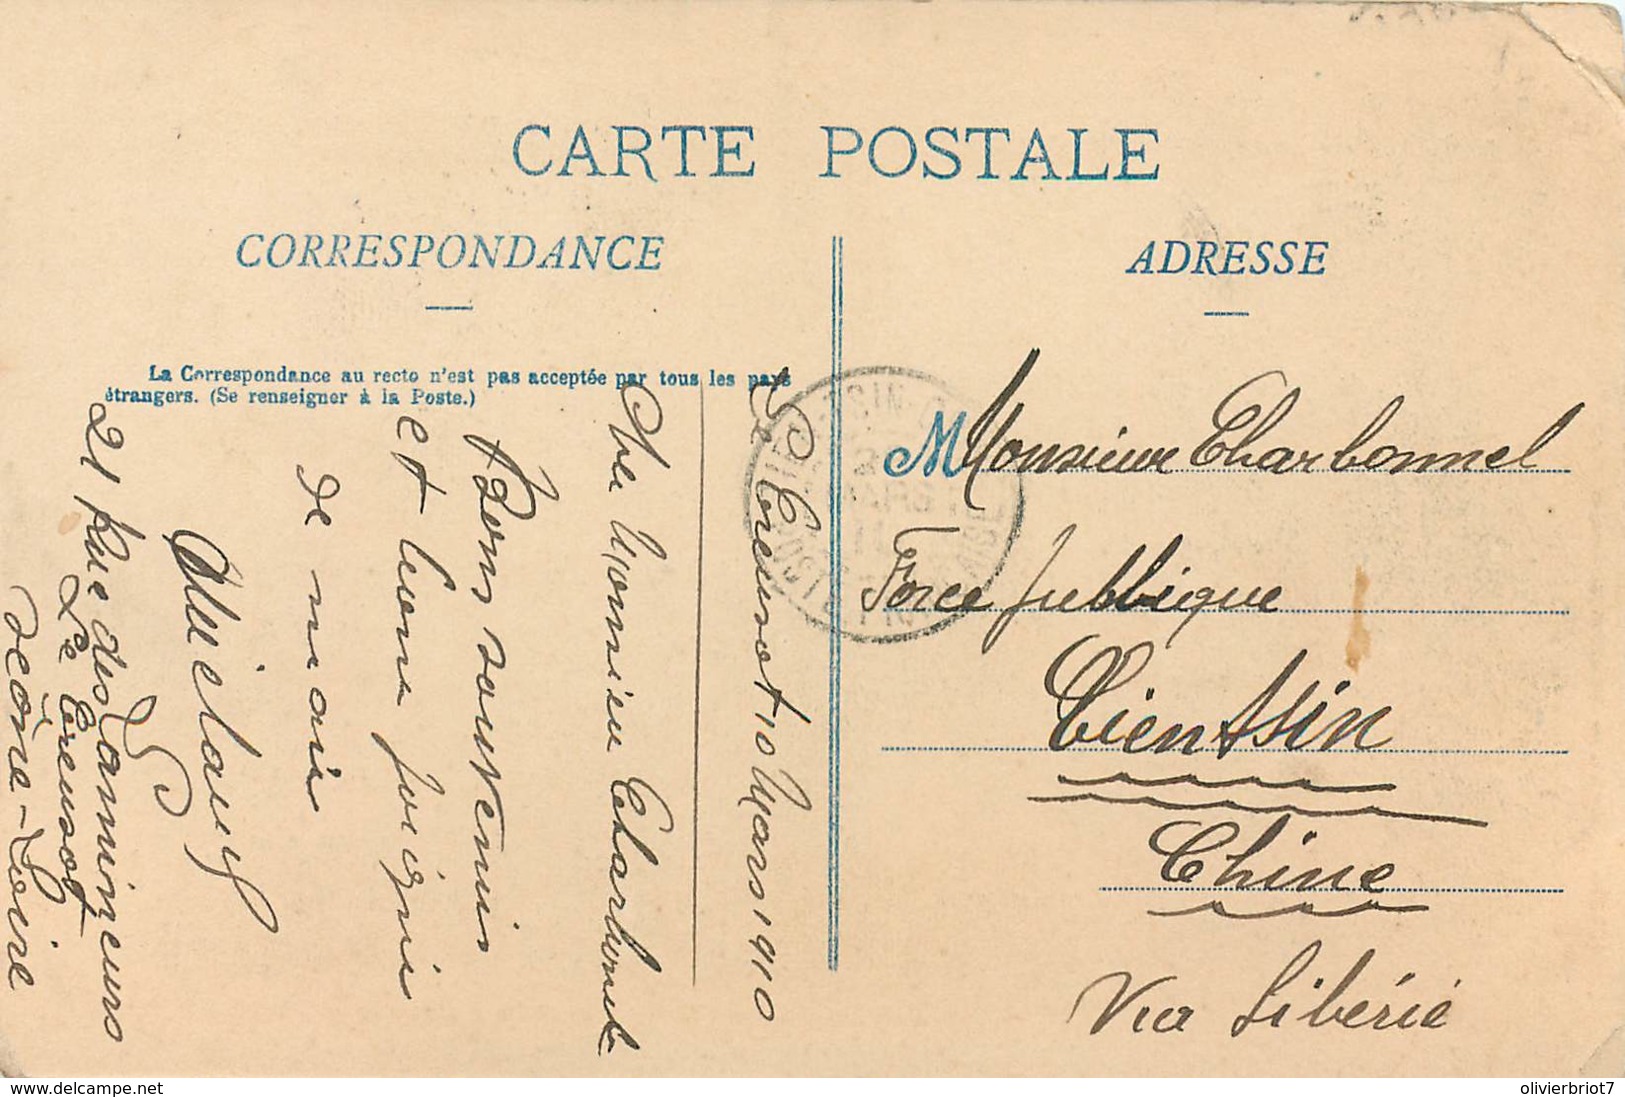 CARTE POSTALE
CORRESPONDANCE
ADRESSE
La Correspondance au recto n'est pas acceptée par tous les pays
étrangers. (Se renseigner à la Poste.)
Le Creusot 10 Mars 1910
Monsieur Charbonnel
Bons souvenirs
et bonne
21 Rue des Lamineurs
Le Creusot
Seône-Loire
M Monsieur Charbonnel
Force publique
Tientsin
Chine
Via Sibérie
www.delcampe.net
olivierbriot7